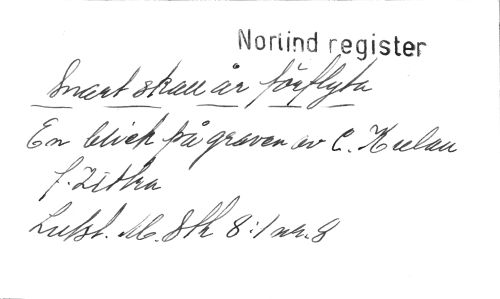 Norlind register
Snart skall år förflyta
En blick på graven av C. Kuhlau
f. Zittra
Lutst. M. Stk 8:1 nr. 8